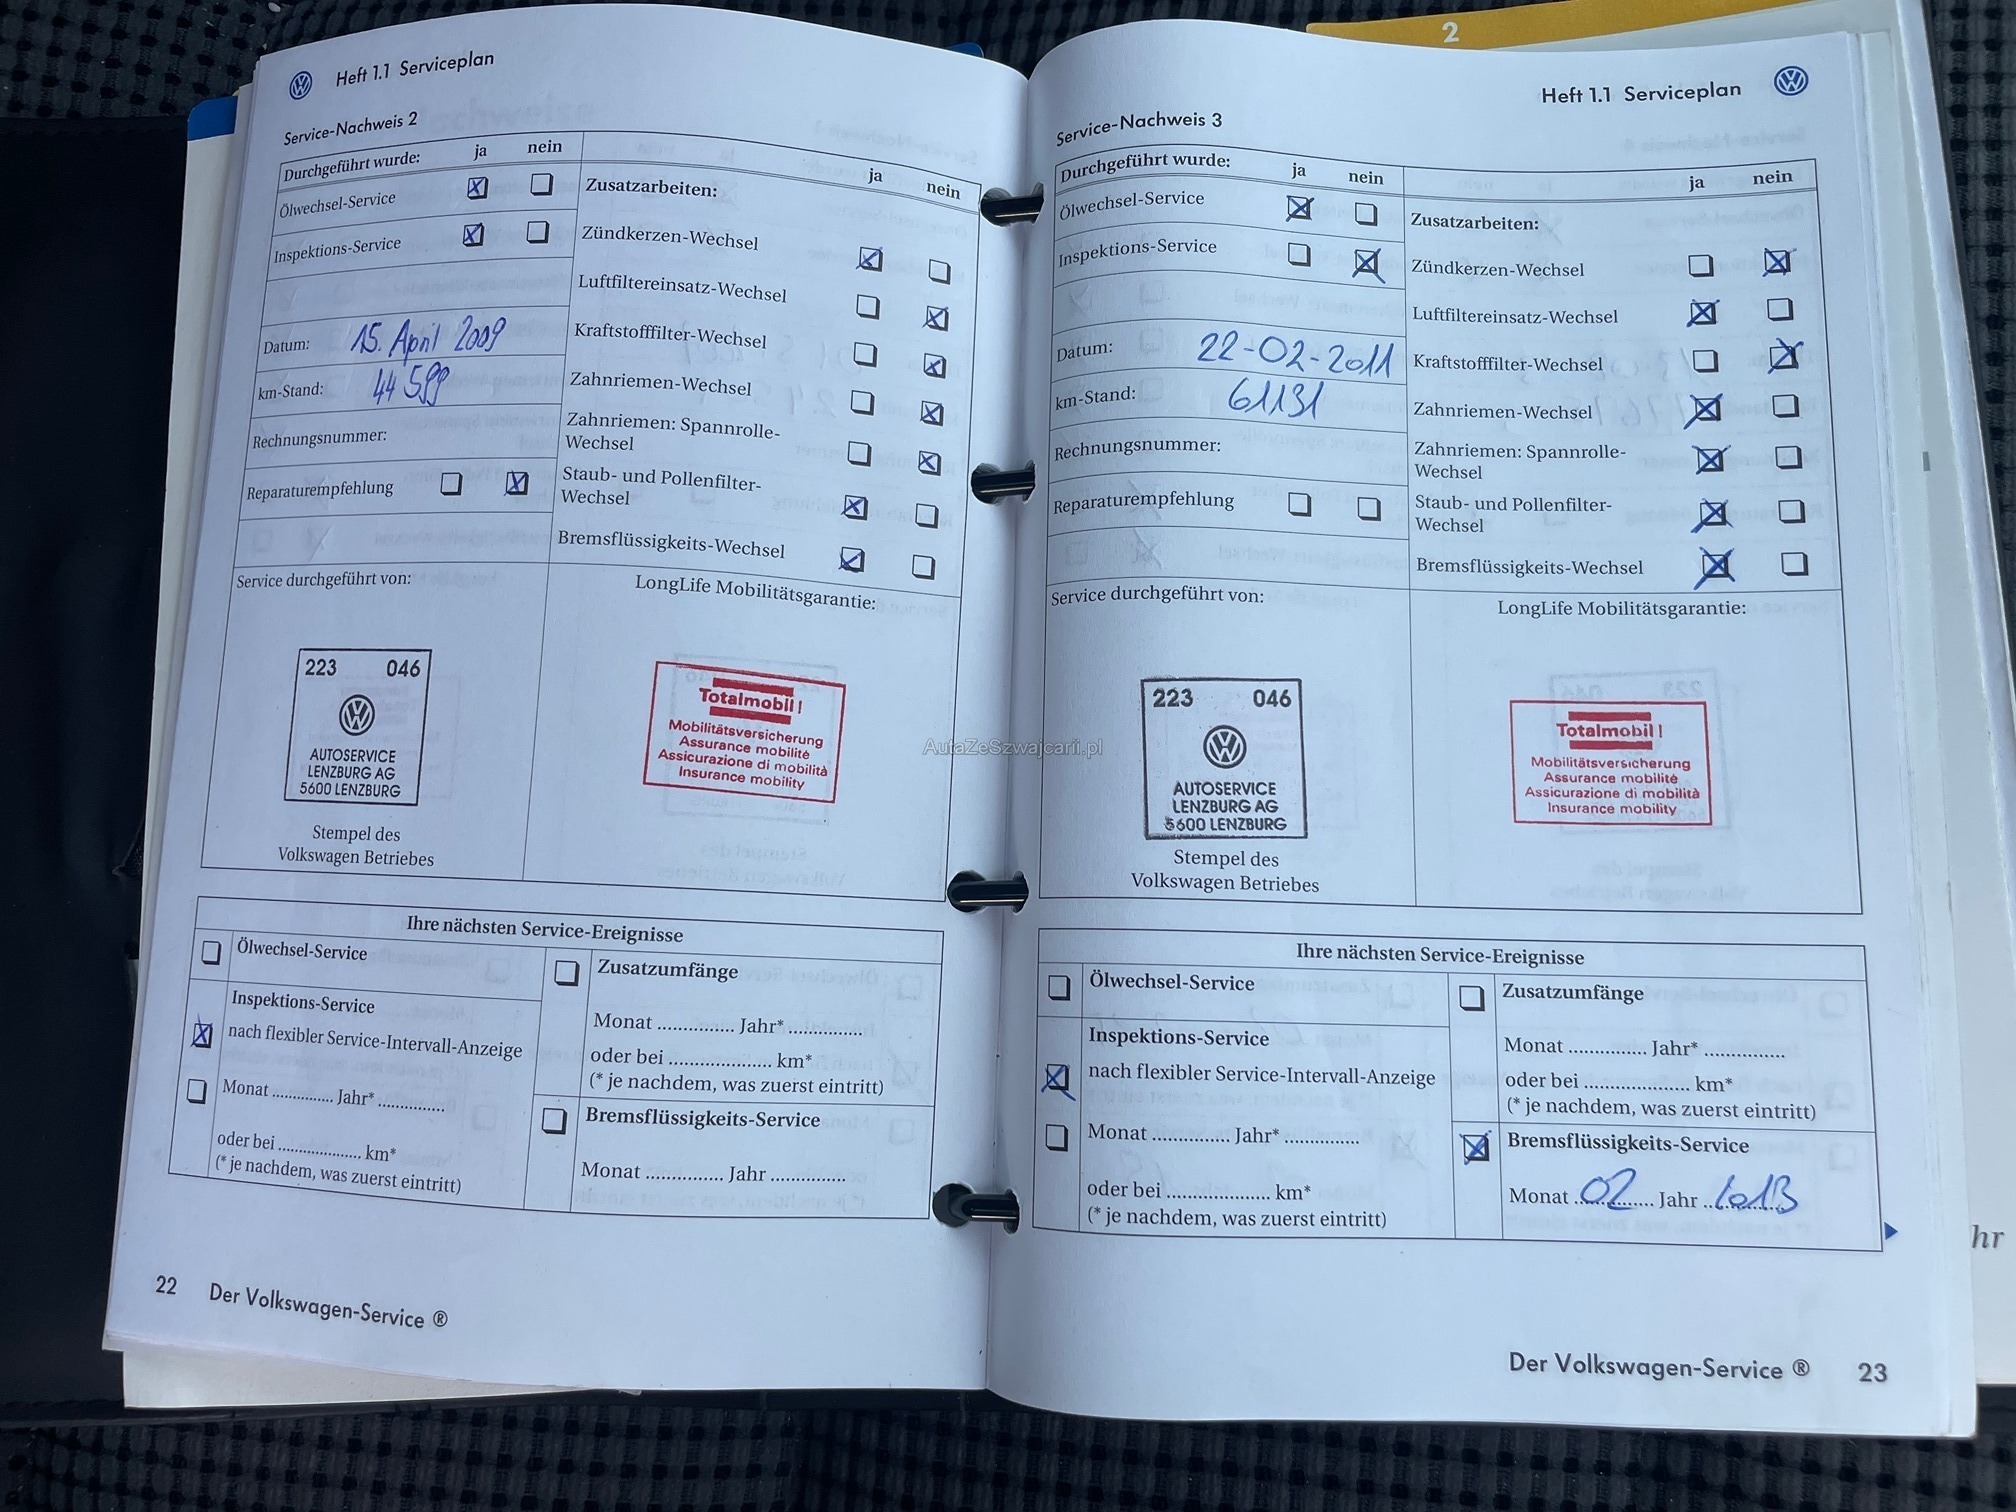 2
Heft 1.1 Serviceplan
Service-Nachweis 2
Durchgeführt wurde: ja nein
Ölwechsel-Service
Inspektions-Service
Datum: 15. April 2009
km-Stand: 44 599
Rechnungsnummer:
Reparaturempfehlung
ja nein
Zusatzarbeiten:
Zündkerzen-Wechsel
Luftfiltereinsatz-Wechsel
Kraftstofffilter-Wechsel
Zahnriemen-Wechsel
Zahnriemen: Spannrolle-
Wechsel
Staub- und Pollenfilter-
Wechsel
Bremsflüssigkeits-Wechsel
Service durchgeführt von:
223 046
AUTOSERVICE
LENZBURG AG
5600 LENZBURG
Stempel des
Volkswagen Betriebes
LongLife Mobilitätsgarantie:
Totalmobil!
Mobilitätsversicherung
Assurance mobilité
Assicurazione di mobilità
Insurance mobility
Ihre nächsten Service-Ereignisse
Ölwechsel-Service
Inspektions-Service
nach flexibler Service-Intervall-Anzeige
Monat .............. Jahr* ..............
oder bei .................... km*
(* je nachdem, was zuerst eintritt)
Zusatzumfänge
Monat .............. Jahr* ..............
oder bei .................... km*
(* je nachdem, was zuerst eintritt)
Bremsflüssigkeits-Service
Monat .............. Jahr ..............
22 Der Volkswagen-Service ®
Heft 1.1 Serviceplan
Service-Nachweis 3
Durchgeführt wurde: ja nein
Ölwechsel-Service
Inspektions-Service
Datum: 22-02-2011
km-Stand: 61131
Rechnungsnummer:
Reparaturempfehlung
ja nein
Zusatzarbeiten:
Zündkerzen-Wechsel
Luftfiltereinsatz-Wechsel
Kraftstofffilter-Wechsel
Zahnriemen-Wechsel
Zahnriemen: Spannrolle-
Wechsel
Staub- und Pollenfilter-
Wechsel
Bremsflüssigkeits-Wechsel
Service durchgeführt von:
223 046
AUTOSERVICE
LENZBURG AG
5600 LENZBURG
Stempel des
Volkswagen Betriebes
LongLife Mobilitätsgarantie:
Totalmobil!
Mobilitätsversicherung
Assurance mobilité
Assicurazione di mobilità
Insurance mobility
Ihre nächsten Service-Ereignisse
Ölwechsel-Service
Inspektions-Service
nach flexibler Service-Intervall-Anzeige
Monat .............. Jahr* ..............
oder bei .................... km*
(* je nachdem, was zuerst eintritt)
Zusatzumfänge
Monat .............. Jahr* ..............
oder bei .................... km*
(* je nachdem, was zuerst eintritt)
Bremsflüssigkeits-Service
Monat 02 Jahr 2013
Der Volkswagen-Service ® 23
hr
AutaZeSzwajcarii.pl